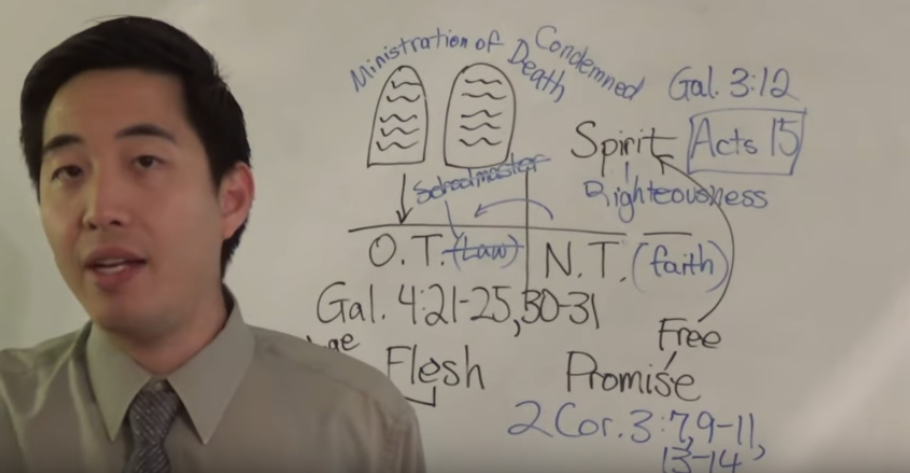 Ministration of Death
Condemned
Gal. 3:12
Spirit
Acts 15
Schoolmaster
Righteousness
O.T. (Law)
N.T. (faith)
Gal. 4:21-25,30-31
Free
Flesh
Promise
2 Cor. 3:7,9-11,
13-14